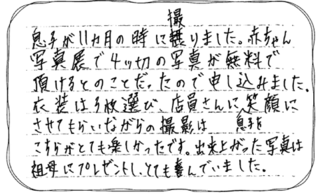 撮
息子が11ヵ月の時に撮りました。赤ちゃん
写真展で4ッ切の写真が無料で
頂けるとのことだったので申し込みました。
衣装は3枚選び、店員さんに笑顔に
させてもらいながらの撮影は 息子も
こちらがとても楽しかったです。出来上がった写真は
祖母にプレゼントし、とても喜んでいました。